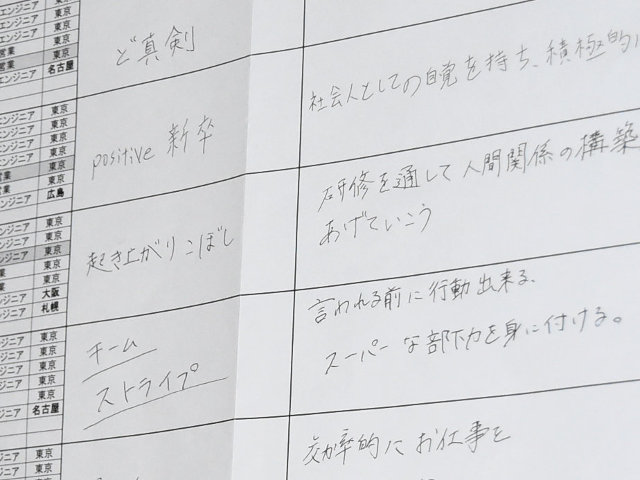 ンジニア 東京
東京
営業 東京
営業 東京
エンジニア 名古屋
ど真剣
社会人としての自覚を持ち、積極的に
エンジニア 東京
ンジニア 東京
ンジニア 東京
営業 東京
営業 東京
ンジニア 広島
positive 新卒
研修を通して人間関係の構築
あげていこう
ンジニア 東京
ンジニア 東京
ンジニア 東京
業 東京
業 大阪
ンジニア 札幌
起き上がりこぼし
言われる前に行動出来る、
スーパーな部下力を身に付ける。
ンジニア 東京
ンジニア 東京
ンジニア 東京
ンジニア 東京
東京
ンジニア 名古屋
チーム
ストライプ
効率的にお仕事を
ニア 東京
ニア 東京
東京